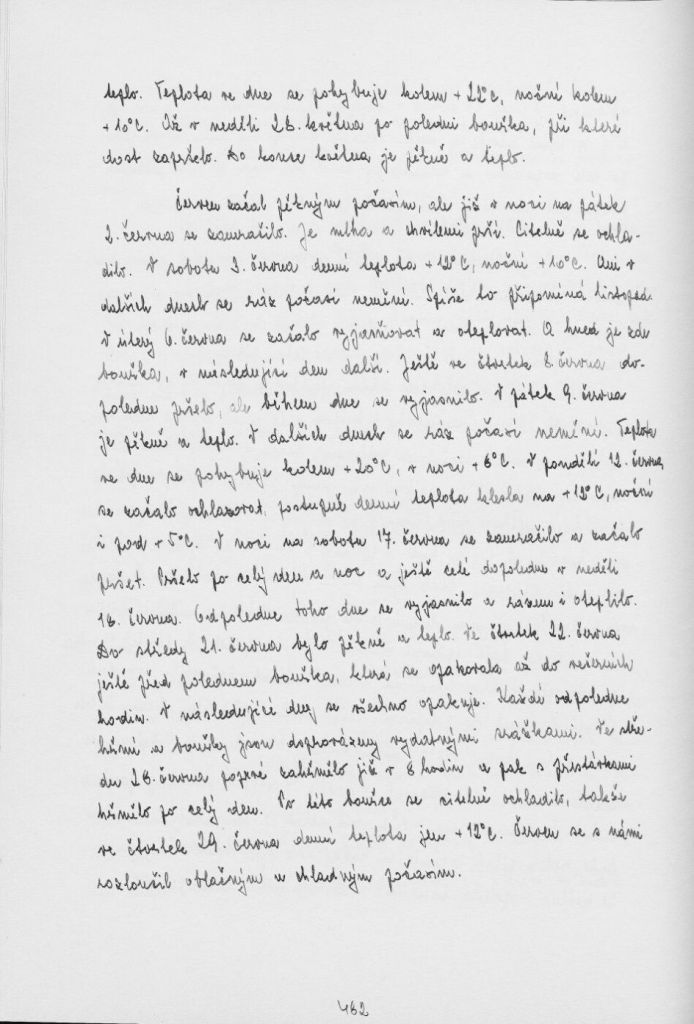 teplo. Teplota ve dne se pohybuje kolem +22°C, noční kolem
+10°C. Až v neděli 28. května po poledni bouřka, při které
dost zapršelo. Do konce května je pěkně a teplo.
Červen začal pěkným počasím, ale již v noci na pátek
2. června se zamračilo. Je mlha a chvílemi prší. Citelně se ochla-
dilo. V sobotu 3. června denní teplota +12°C, noční +10°C. Ani v
dalších dnech se ráz počasí nemění. Spíše to připomíná listopad.
V úterý 6. června se začalo vyjasňovat a oteplovat. A hned je zde
bouřka, v následující den další. Ještě ve čtvrtek 8. června do-
poledne pršelo, ale během dne se vyjasnilo. V pátek 9. června
je pěkně a teplo. V dalších dnech se ráz počasí nemění. Teplota
ve dne se pohybuje kolem +20°C, v noci +6°C. V pondělí 12. června
se začalo ochlazovat, postupně denní teplota klesla na +12°C, noční
i pod +5°C. V noci na sobotu 17. června se zamračilo a začalo
pršet. Pršelo po celý den a noc a ještě celé dopoledne v neděli
18. června. Odpoledne toho dne se vyjasnilo a rázem i oteplilo.
Do středy 21. června bylo pěkně a teplo. Ve čtvrtek 22. června
ještě před polednem bouřka, která se opakovala až do večerních
hodin. V následující dny se všechno opakuje. Každé odpoledne
hřmí a bouřky jsou doprovázeny vydatnými srážkami. Ve stře-
du 28. června poprvé zahřmělo již v 8 hodin a pak s přestávkami
hřmělo po celý den. Po této bouřce se citelně ochladilo, takže
ve čtvrtek 29. června denní teplota jen +12°C. Červen se s námi
rozloučil oblačným a chladným počasím.
482